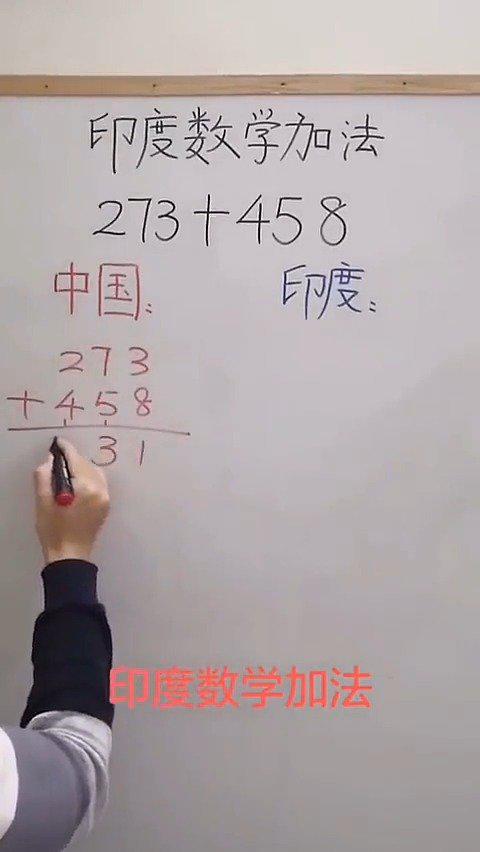 印度数学加法
273+458
中国:
印度:
273
+458
31
印度数学加法